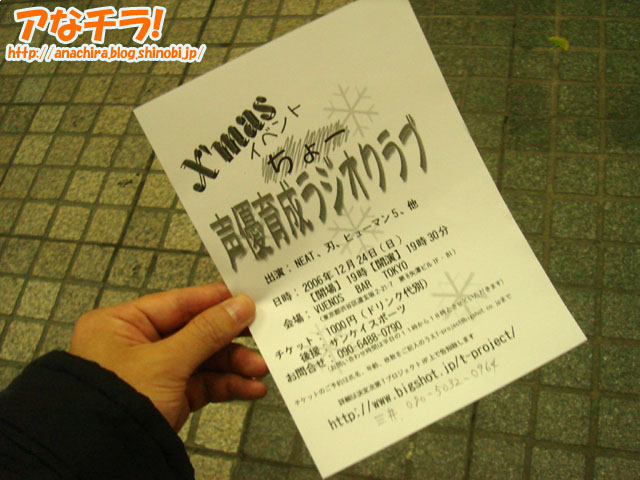 アなチラ!
http://anachira.blog.shinobi.jp/
X'mas
イベント
ちょー
声優育成ラジオクラブ
出演：NEAT、刃、ヒューマン5、他
日時：2006年12月24日（日）
【開場】19時【開演】19時30分
会場：VUENOS BAR TOKYO
チケット：1000円（ドリンク代別）
後援：サンケイスポーツ
お問合せ：090-6488-0790
http://www.bigshot.jp/t-project/
三井 080-5032-0764